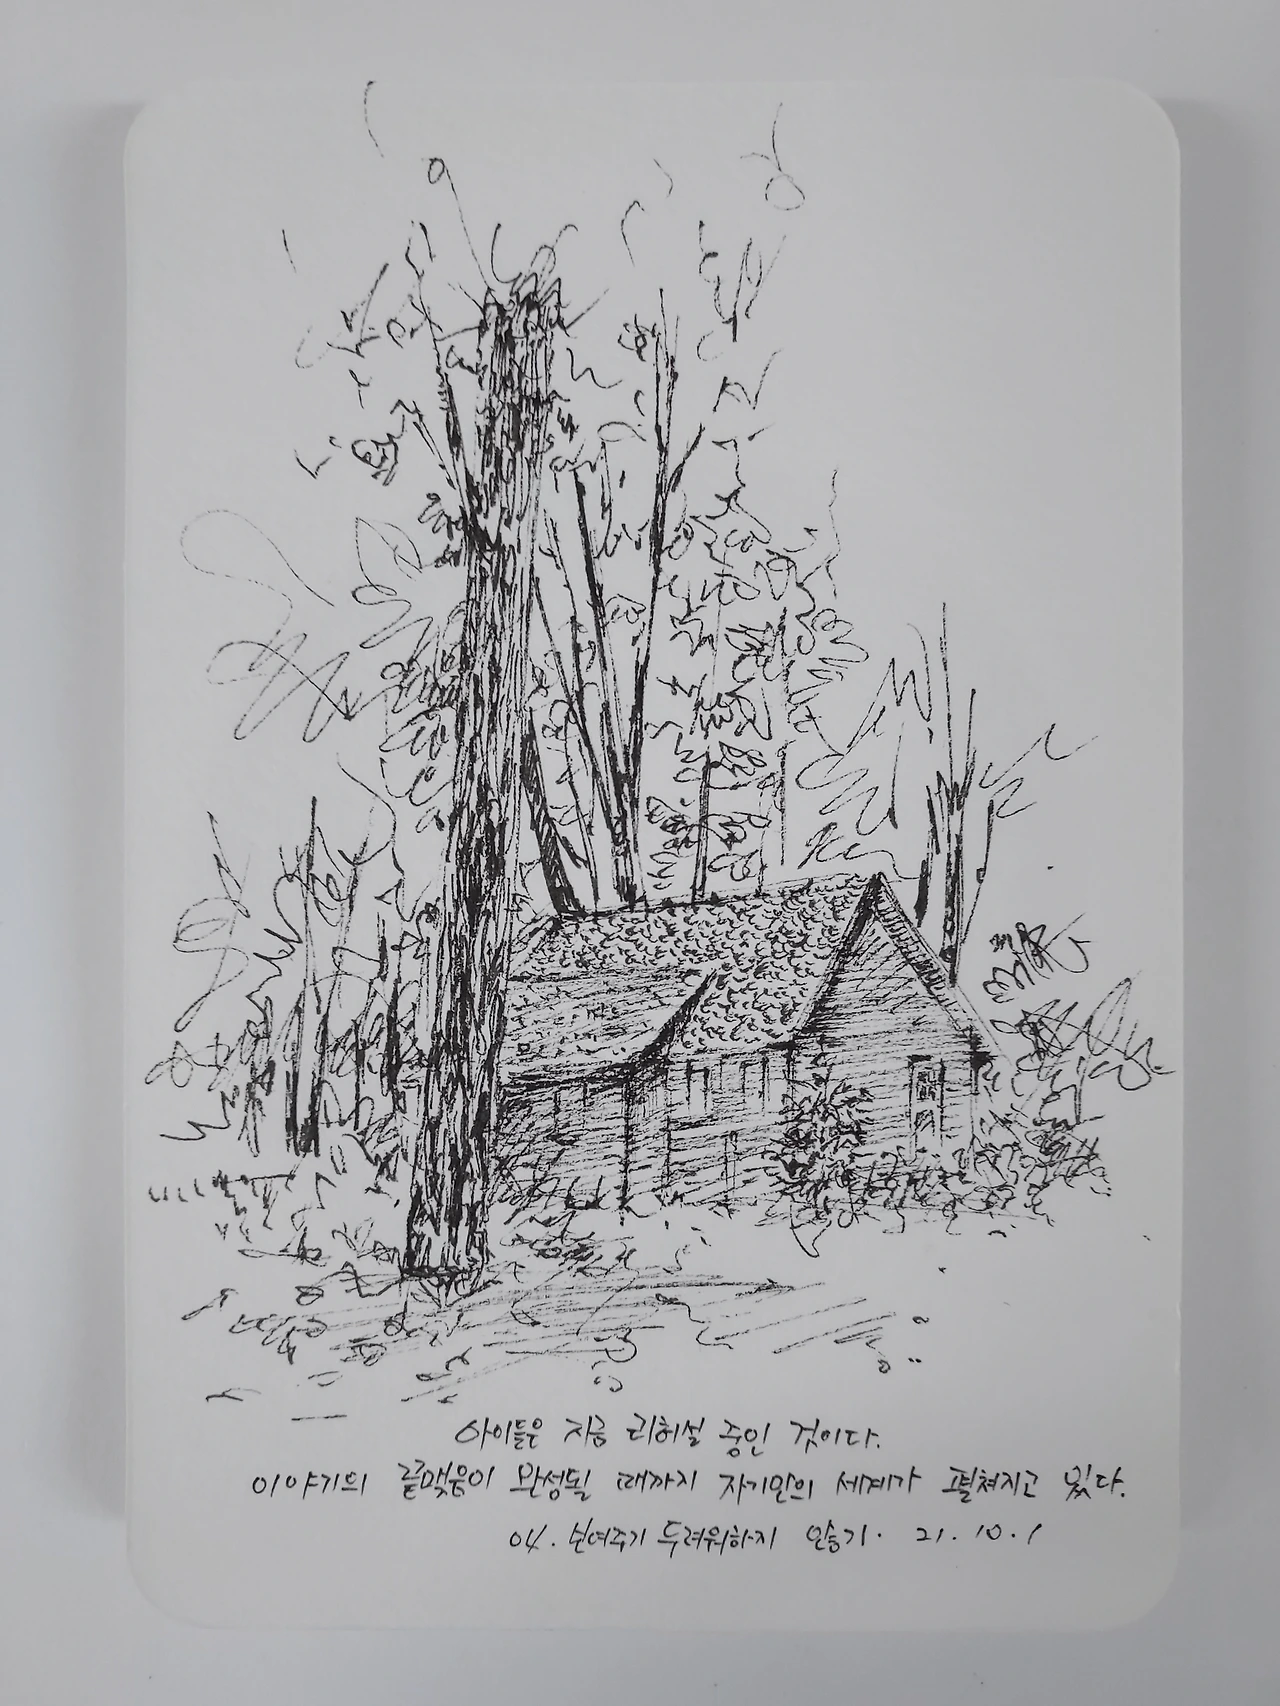 아이들은 지금 리허설 중인 것이다.
이야기의 끝맺음이 완성될 때까지 자기만의 세계가 펼쳐지고 있다.
04. 보여주기 두려워하지 않기. 21. 10. 1